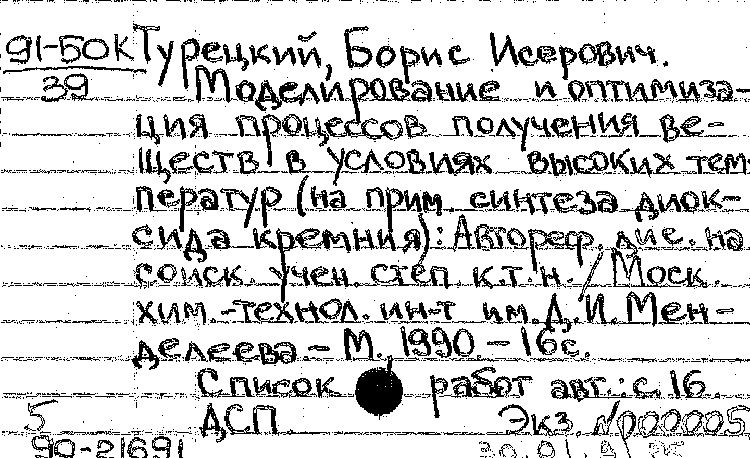 91-50К Турецкий, Борис Исерович.
39 Моделирование и оптимиза-
ция процессов получения ве-
ществ в условиях высоких тем
ператур (на прим. синтеза диок-
сида кремния): Автореф. дис. на
соиск. учен. степ. к.т.н. / Моск.
хим.-технол. ин-т им. Д.И. Мен-
делеева. - М., 1990. - 16 с.
Список работ авт.: с. 16.
5 ДСП. Экз. №000005
90-21691